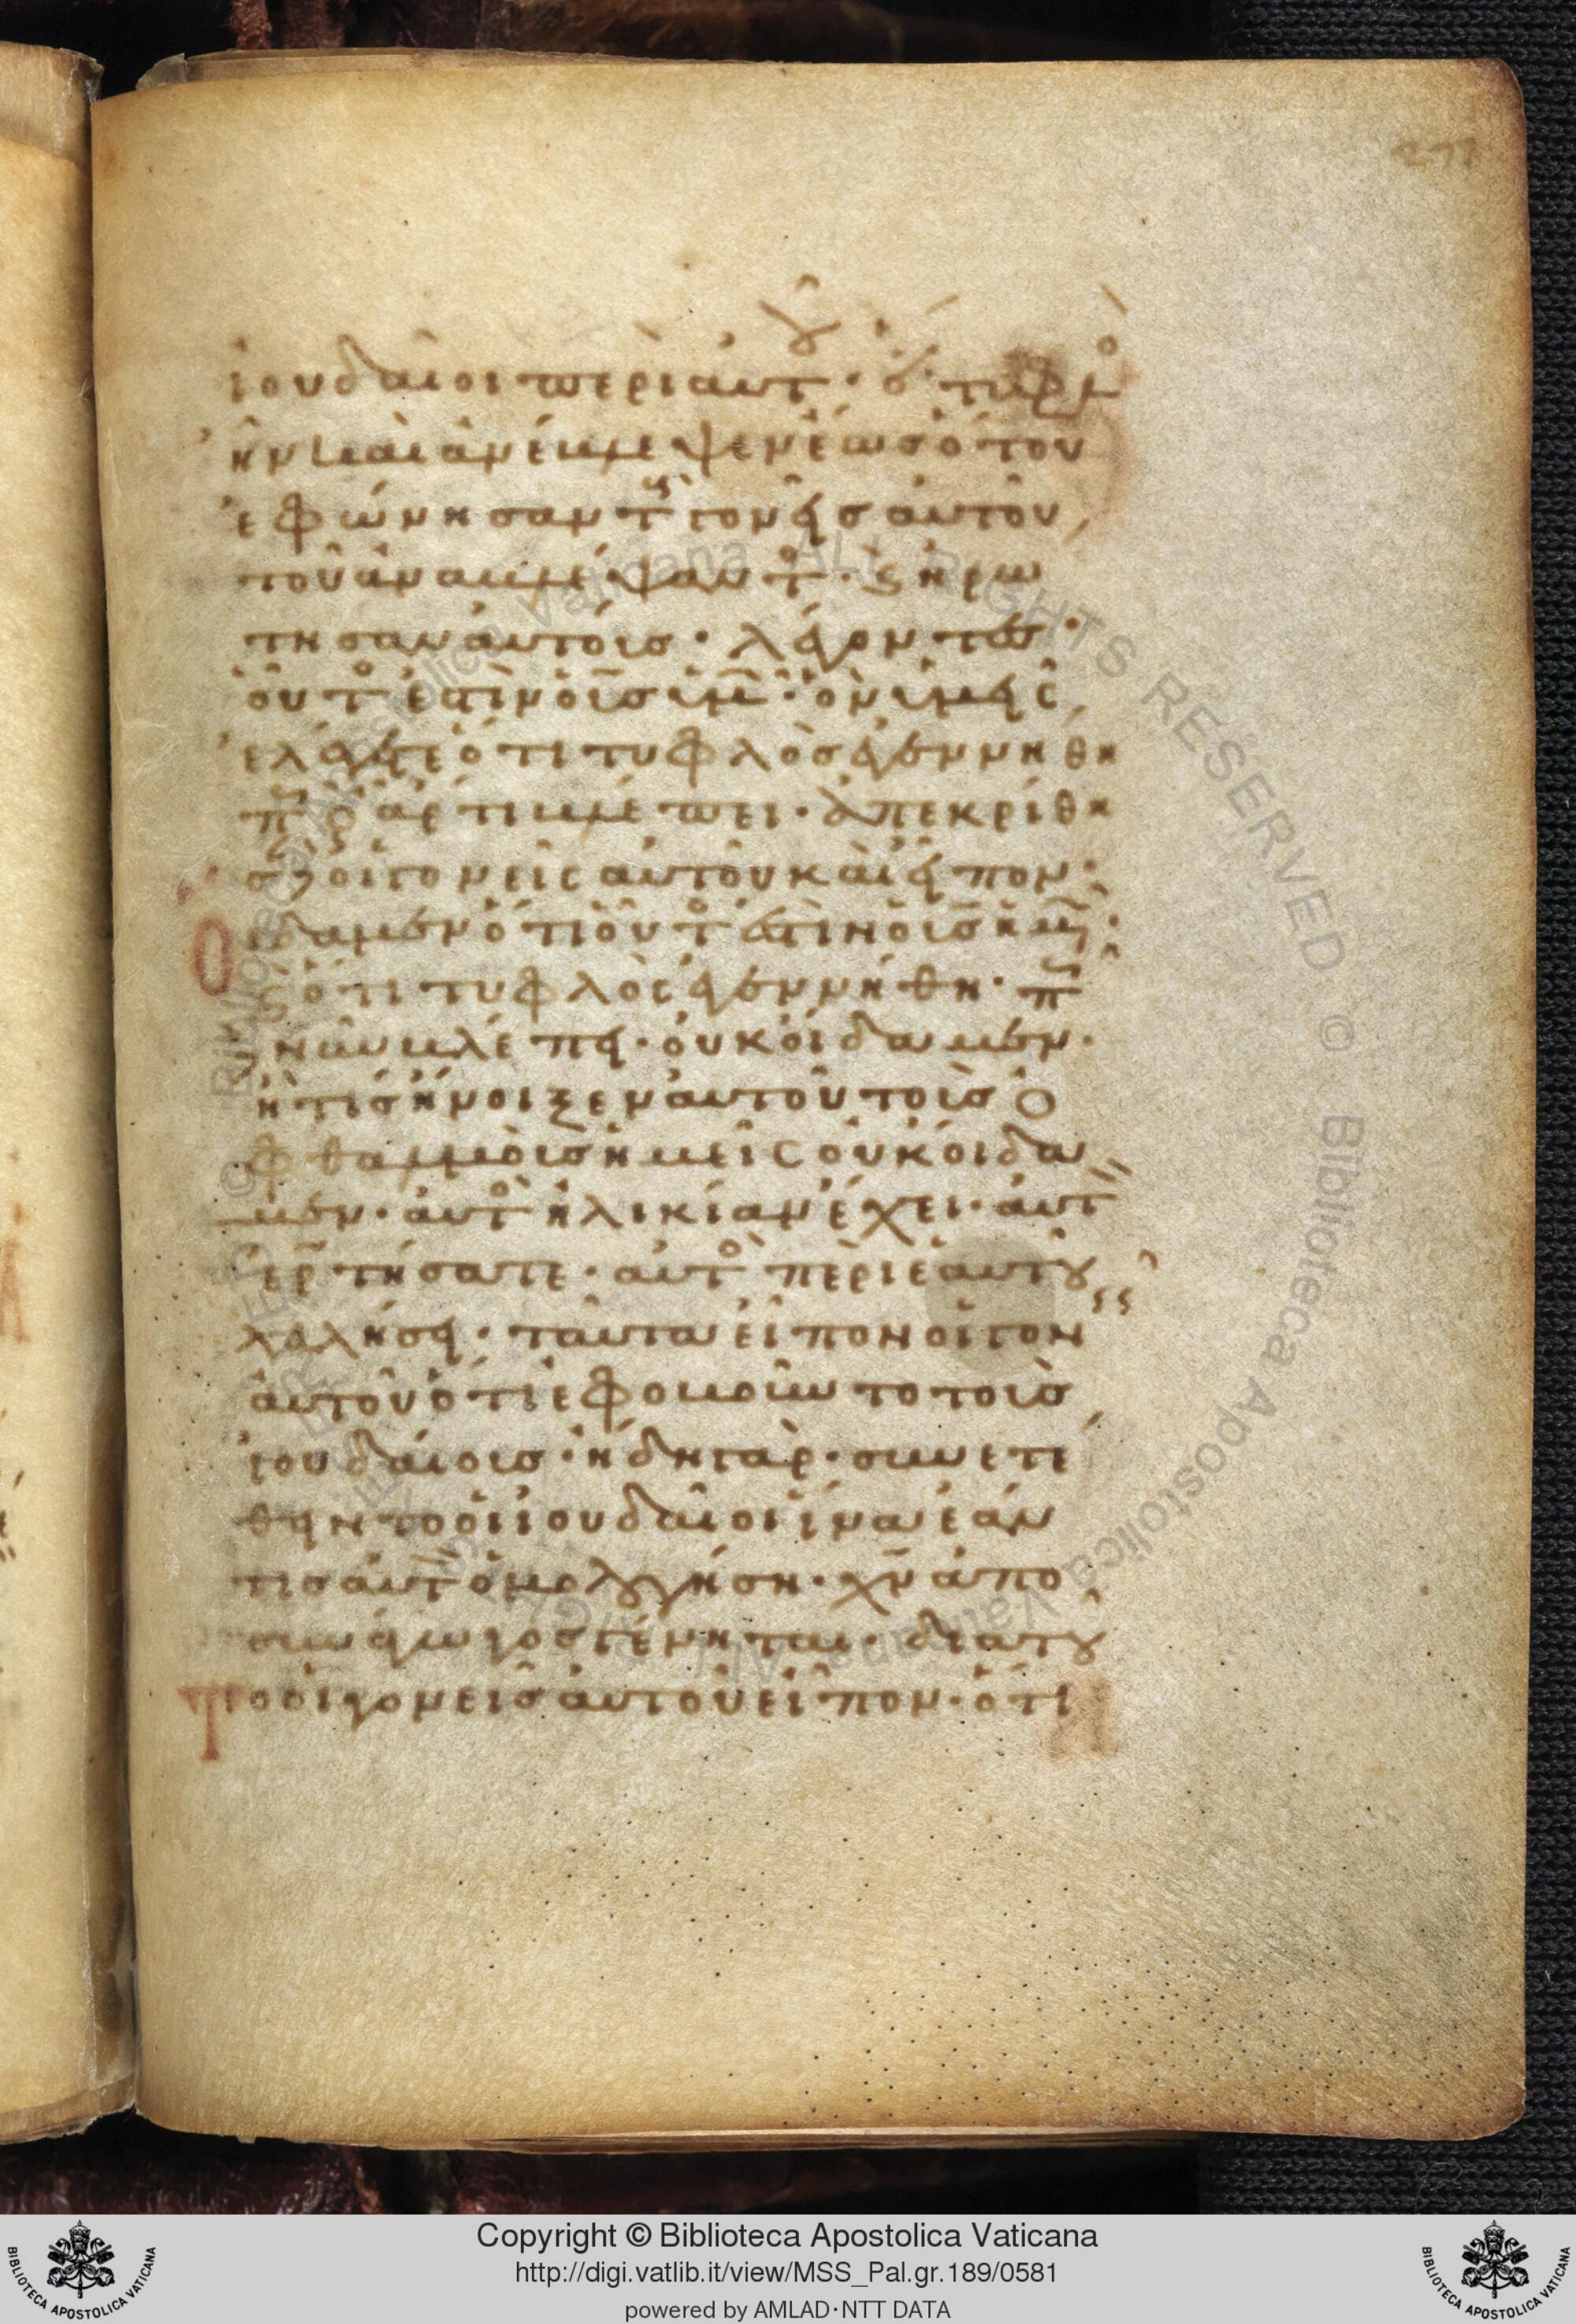 ἰουδαῖοι περὶ αὐτοῦ· ὅτι τυφλὸς
ἦν καὶ ἀνέβλεψεν ἕως ὅτου
ἐφώνησαν τοὺς γονεῖς αὐτοῦ
τοῦ ἀναβλέψαντος· καὶ ἠρώ
τησαν αὐτοὺς· λέγοντες·
οὗτός ἐστὶν ὁ υἱὸς ὑμῶν· ὃν ὑμεῖς
ἐλέγετε ὅτι τυφλὸς ἐγεννήθη
πῶς ἄρτι βλέπει· ἀπεκρίθη
σαν οἱ γονεῖς αὐτοῦ καὶ εἶπον·
Οἴδαμεν ὅτι οὗτός ἐστὶν ὁ υἱὸς ἡμῶν·
καὶ ὅτι τυφλὸς ἐγεννήθη· πῶς
νῦν βλέπει· οὐκ οἴδαμεν·
ἢ τίς ἤνοιξεν αὐτοῦ τοὺς ὀ
φθαλμοὺς ἡμεῖς οὐκ οἴδα
μεν· αὐτὸς ἡλικίαν ἔχει· αὐτὸν
ἐρωτήσατε· αὐτὸς περὶ ἑαυτοῦ
λαλήσει· ταῦτα εἶπον οἱ γον
αὐτοῦ ὅτι ἐφοβοῦντο τοὺς
ἰουδαίους· ἤδη γὰρ· συνετέ
θηντο οἱ ἰουδαῖοι ἵνα ἐάν
τις αὐτὸν ὁμολογήση· χν ἀπο
συνάγωγος γένηται· διατοῦ
Το οἱ γονεῖς αὐτοῦ εἶπον· ὅτι
Copyright © Biblioteca Apostolica Vaticana
http://digi.vatlib.it/view/MSS_Pal.gr.189/0581
powered by AMLAD·NTT DATA